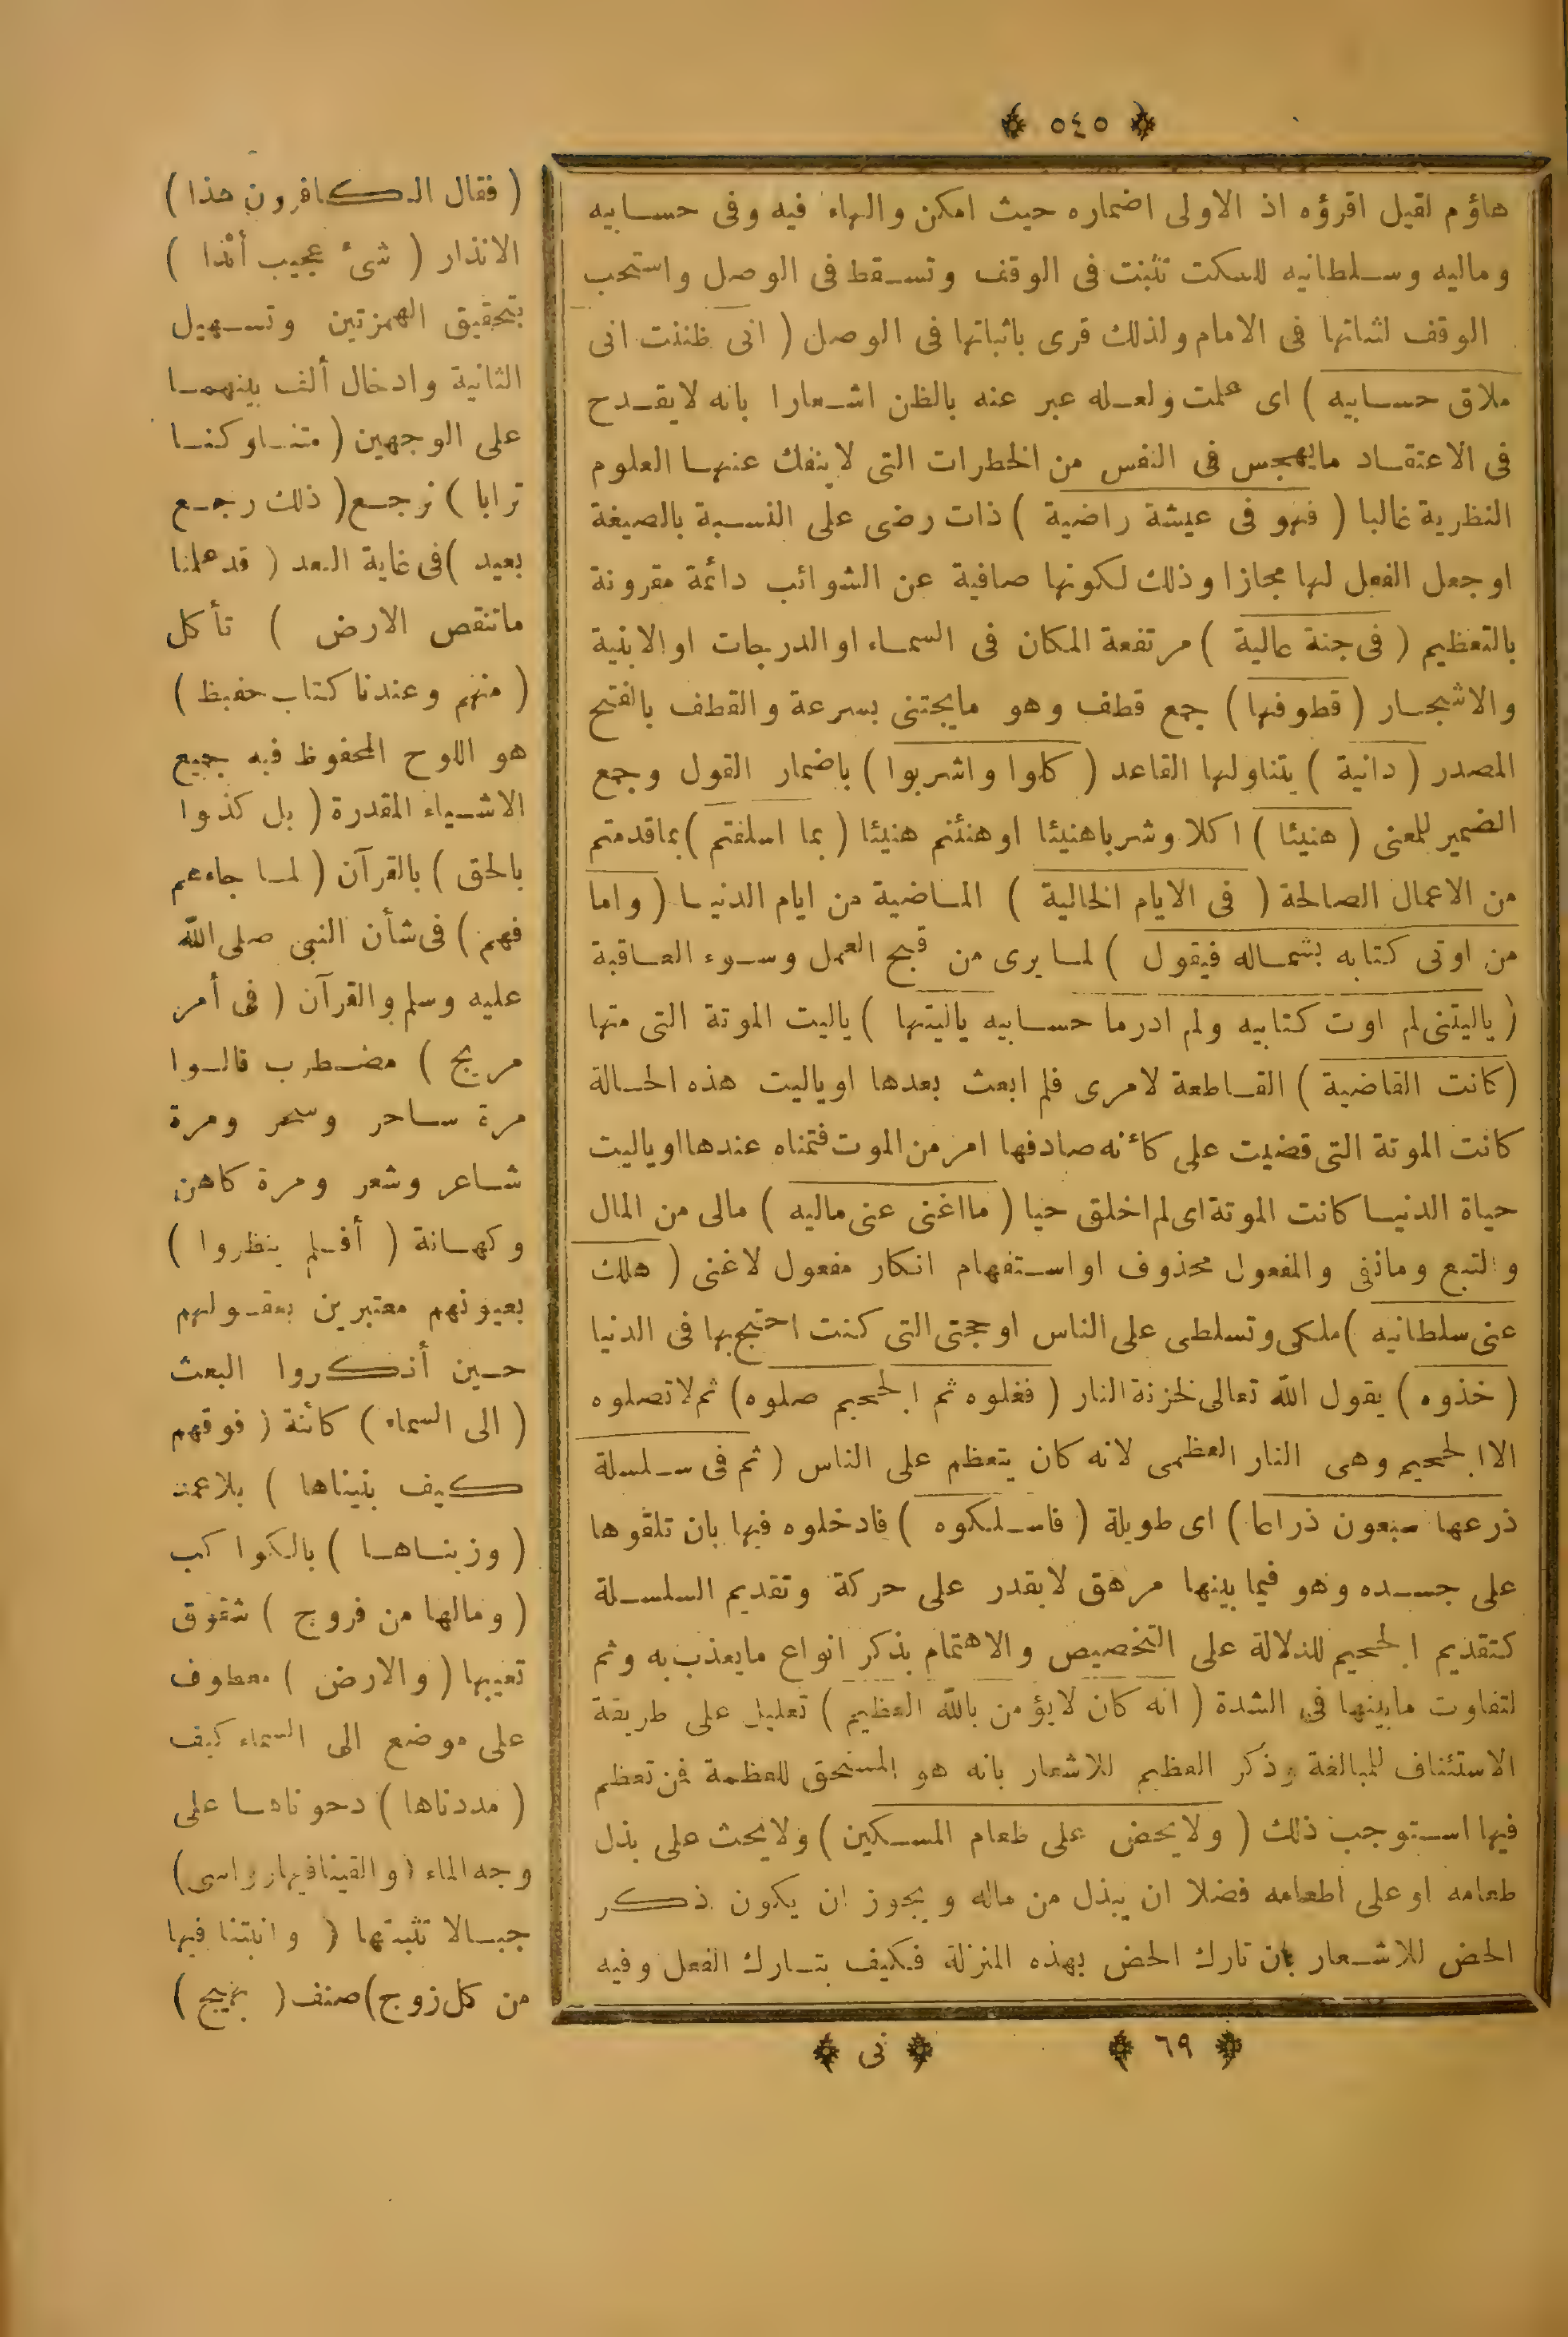 ٥٤٥
هاؤم لقيل اقرؤه اذ الاولى اضماره حيث امكن والهاء فيه وفى حسابيه
وماليه وسلطانيه للسكت تثبت فى الوقف وتسقط فى الوصل واستحب
الوقف لثباتها فى الامام ولذلك قرى باثباتها فى الوصل ( انى ظننت انى
ملاق حسابيه ) اى علمت ولعله عبر عنه بالظن اشعارا بانه لايقدح
فى الاعتقاد مايهجس فى النفس من الخطرات التى لاينفك عنها العلوم
النظرية غالبا ( فهو فى عيشة راضية ) ذات رضى على النسبة بالصيغة
او جعل الفعل لها مجازا وذلك لكونها صافية عن الشوائب دائمة مقرونة
بالتعظيم ( فى جنة عالية ) مرتفعة المكان فى السماء او الدرجات او الابنية
والاشجار ( قطوفها ) جمع قطف وهو مايجتنى بسرعة والقطف بالفتح
المصدر ( دانية ) يتناولها القاعد ( كلوا واشربوا ) باضمار القول وجمع
الضمير للمعنى ( هنيئا ) اكلا وشربا هنيئا او هنئتم هنيئا ( بما اسلفتم ) بماقدمتم
من الاعمال الصالحة ( فى الايام الخالية ) الماضية من ايام الدنيا ( واما
من اوتى كتابه بشماله فيقول ) لما يرى من قبح العمل وسوء العاقبة
( ياليتنى لم اوت كتابيه ولم ادر ما حسابيه ياليتها ) ياليت الموتة التى متها
( كانت القاضية ) القاطعة لامرى فلم ابعث بعدها او ياليت هذه الحالة
كانت الموتة التى قضيت على كأنه صادفها امر من الموت فتمناه عندها او ياليت
حياة الدنيا كانت الموتة اى لم اخلق حيا ( ما اغنى عنى ماليه ) مالى من المال
والتبع ومانفى والمفعول محذوف او استفهام انكار مفعول لاغنى ( هلك
عنى سلطانيه ) ملكى وتسلطى على الناس او حجتى التى كنت احتج بها فى الدنيا
( خذوه ) يقول الله تعالى لخزنة النار ( فغلوه ثم الجحيم صلوه ) ثم لاتصلوه
الا الجحيم وهى النار العظمى لانه كان يتعظم على الناس ( ثم فى سلسلة
ذرعها سبعون ذراعا ) اى طويلة ( فاسلكوه ) فادخلوه فيها بان تلقوها
على جسده وهو فيما بينها مرهق لايقدر على حركة وتقديم السلسلة
كتقديم الجحيم للدلالة على التخصيص والاهتمام بذكر انواع مايعذب به وثم
لتفاوت مابينها فى الشدة ( انه كان لايؤمن بالله العظيم ) تعليل على طريقة
الاستئناف للمبالغة وذكر العظيم للاشعار بانه هو المستحق للعظمة فمن تعظم
فيها استوجب ذلك ( ولا يحض على طعام المسكين ) ولايحث على بذل
طعامه او على اطعامه فضلا ان يبذل من ماله ويجوز ان يكون ذكر
الحض للاشعار بان تارك الحض بهذه المنزلة فكيف بتارك الفعل وفيه
( فقال الكافرون هذا )
الانذار ( شئ عجيب أئذا )
بتحقيق الهمزتين وتسهيل
الثانية وادخال ألف بينهما
على الوجهين ( متنا وكنا
ترابا ) نرجع ( ذلك رجع
بعيد ) فى غاية البعد ( قد علمنا
ماتنقص الارض ) تأكل
( منهم وعندنا كتاب حفيظ )
هو اللوح المحفوظ فيه جميع
الاشياء المقدرة ( بل كذبوا
بالحق ) بالقرآن ( لما جاءهم
فهم ) فى شأن النبى صلى الله
عليه وسلم والقرآن ( فى أمر
مريج ) مضطرب قالوا
مرة ساحر وسحر ومرة
شاعر وشعر ومرة كاهن
وكهانة ( أفلم ينظروا )
بعيونهم معتبرين بعقولهم
حين أنكروا البعث
( الى السماء ) كائنة ( فوقهم
كيف بنيناها ) بلاعمد
( وزيناها ) بالكواكب
( ومالها من فروج ) شقوق
تعيبها ( والارض ) معطوف
على موضع الى السماء كيف
( مددناها ) دحوناها على
وجه الماء ( والقينا فيها رواسى )
جبالا تثبتها ( وانبتنا فيها
من كل زوج ) صنف ( بهيج )
٦٩
نى